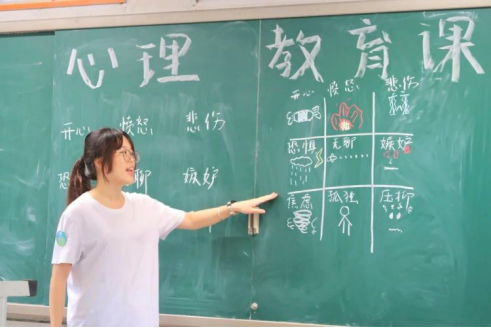 心理教育课
开心 愤怒 悲伤
恐 聊 嫉妒
开心 愤怒 悲伤
恐惧 无聊 嫉妒
焦虑 孤独 压抑